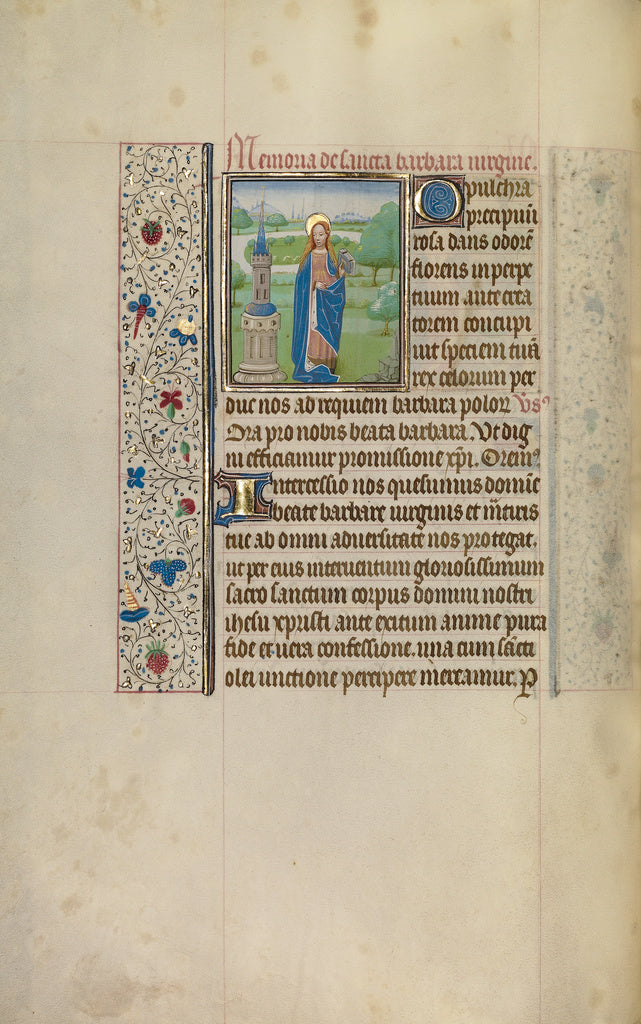 Memoria de sancta barbara uirgine.
O pulchra
precipuu
rosa dans odore
florens in perpe
tuum ante crea
torem concupi
uit speciem tua
rex celorum per
duc nos ad requiem barbara polor vs
Ora pro nobis beata barbara. Vt dig
ni efficiamur promissione xpi. Orem
Intercessio nos quesumus domine
beate barbare uirginis et mturis
tue ab omni aduersitate nos protegat.
ut per eius interuentum gloriosissimum
sacro sanctum corpus domini nostri
ihesu xpristi ante exitum anime pura
fide et uera confessione. una cum sacti
olei unctione percipere mereamur. P